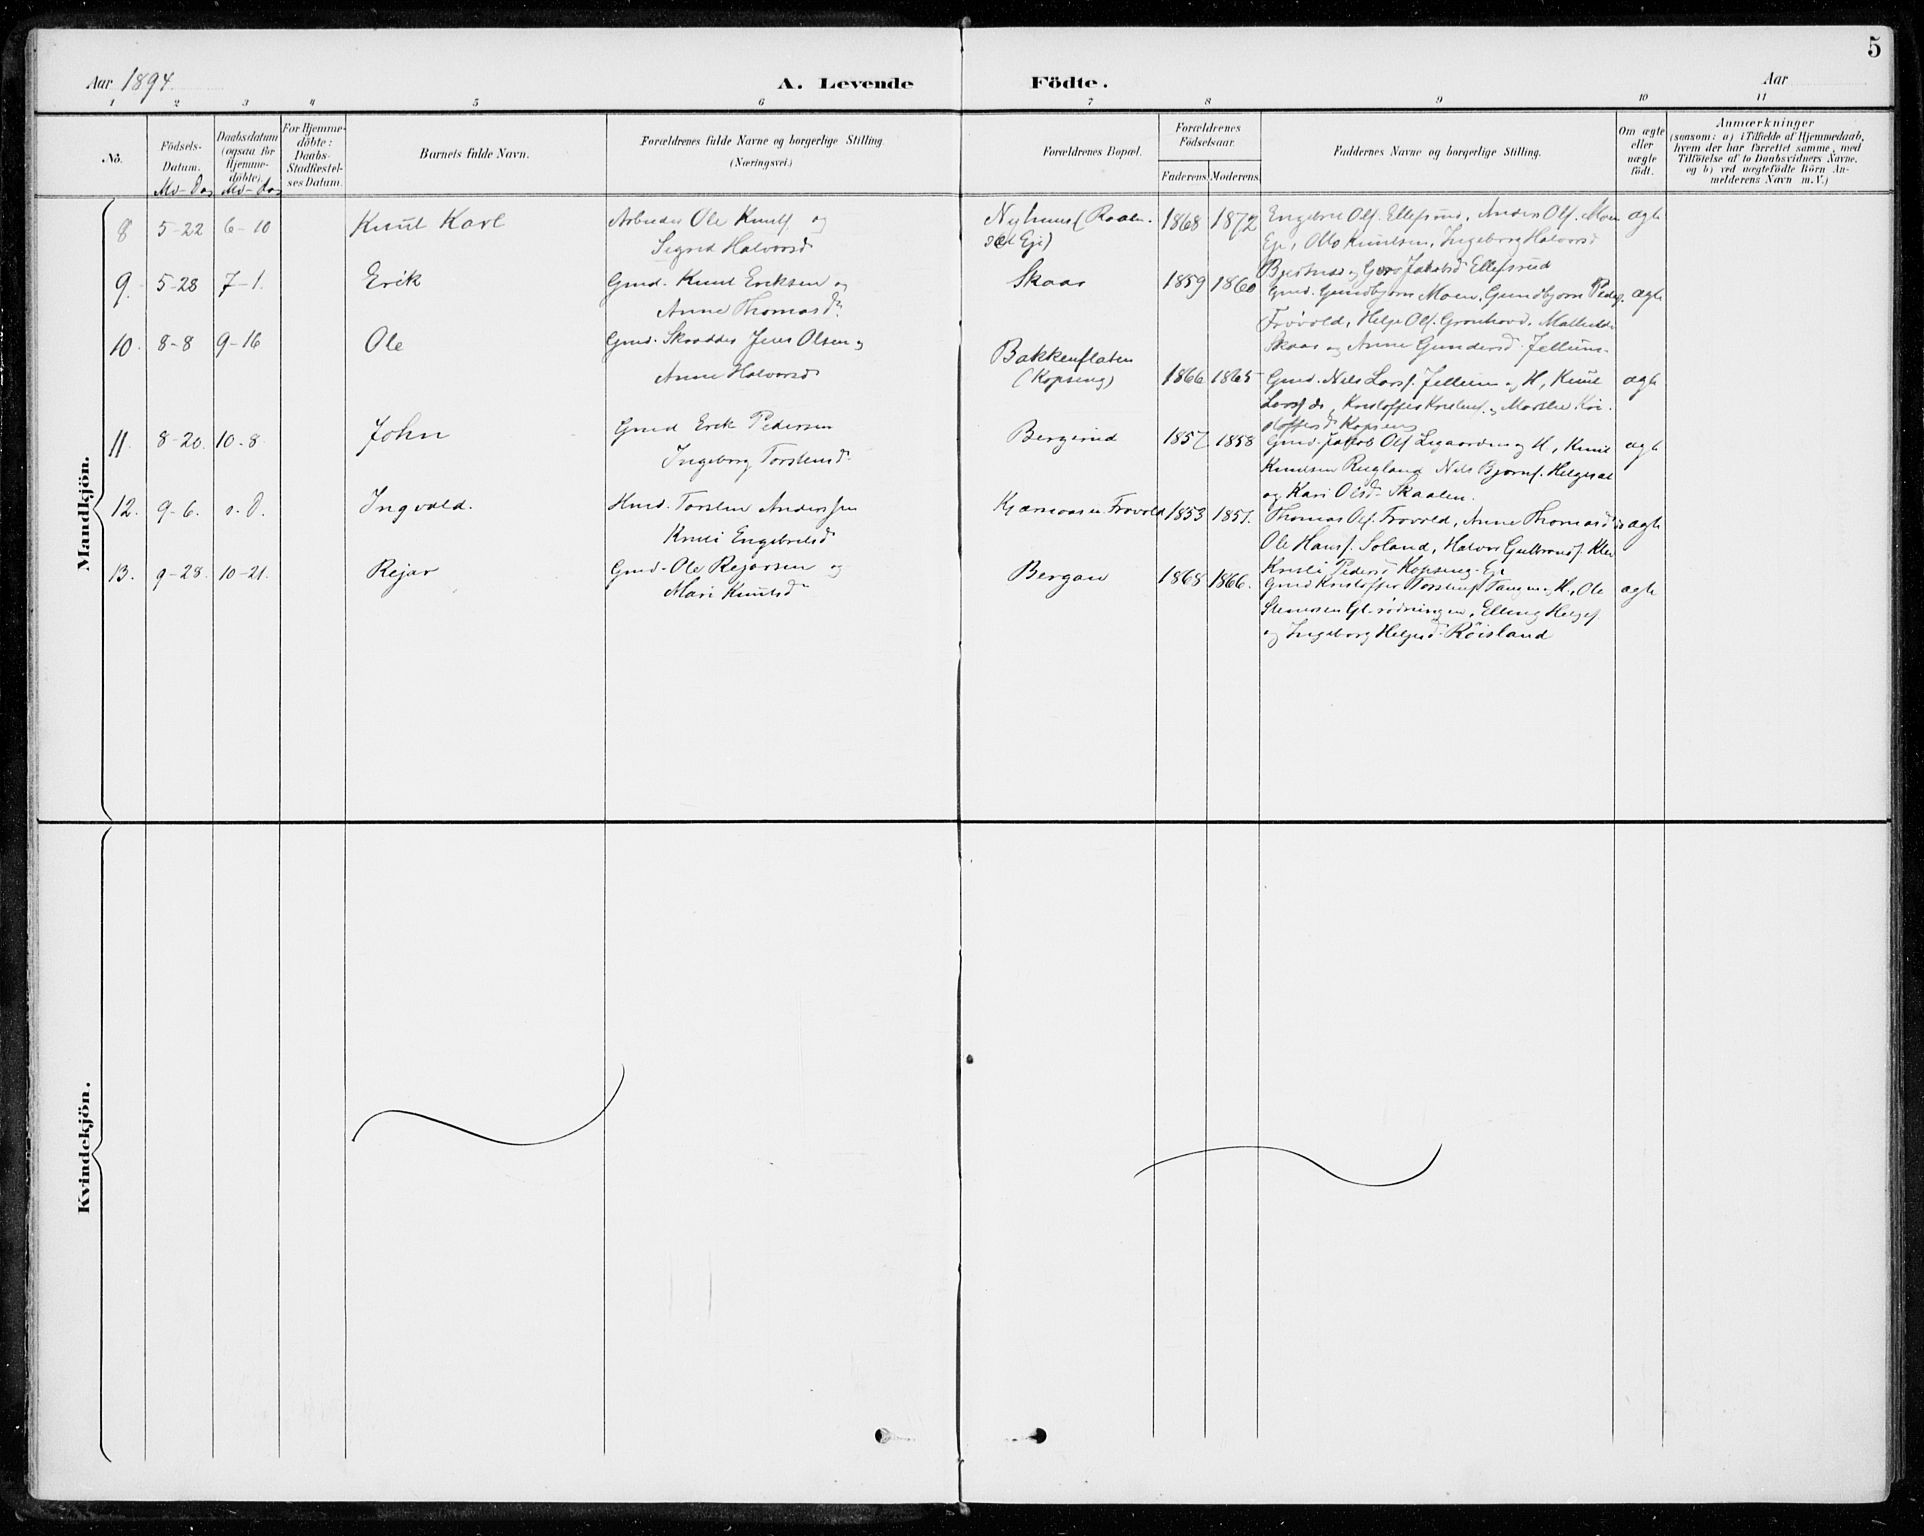 5
Aar 1894. A. Levende Födte. Aar
1 2 3 4 5 6 7 8 9 10 11
No.
Födsels-
Datum.
Mo-Dag
Daabsdatum
(ogsaa for
Hjemme-
döbte).
Mo-Dag
For Hjemme-
döbte:
Daabs-
Stadfæstel-
ses Datum.
Barnets fulde Navn.
Forældrenes fulde Navne og borgerlige Stilling.
(Næringsvei.)
Forældrenes Bopæl.
Forældrenes
Födselsaar.
Faderens. Moderens.
Faddernes Navne og borgerlige Stilling.
Om ægte
eller
uægte
födt.
Anmærkninger
(saasom: a) i Tilfælde af Hjemmedaab,
hvem der har forrettet samme, med
Tilföielse af to Daabsvidners Navne.
og b) ved uægtefödte Börn An-
melderens Navn m.V.)
Mandkjön.
8 5-22 6-10 Knut Karl Arbeider Ole Knuts. og
Sigrid Halvorsd
Nyhuus (Raalen-
1868 1872 Engebret Ols. Ellefsrud, Anders Ols. Moen ægte
Eje, Otto Knutsen, Ingeborg Halvorsd
9. 5-28 7-1. Erik Gmd. Knut Eriksen og
Anne Thomasd.
Skaar 1859 1860
og Guro Jakobsd Ellefsrud
Gmd. Gundbjørn Moen, Gundbjørn Peders. ægte
Frövold, Helje Ols. Grönhovd, Mathilde
Skaar og Anne Gundersd. Jellum-
10. 8-8 9-16 Ole Gmd. Skrædder Jens Olsen og
Anne Halvorsd
Bakkenflaten
(Kopseng) 1866 1865 Gmd. Nils Lars. Jellum og H, Knut ægte
Lars. ds, Kristoffer og Marthe Kri-
stoffersd Kopseng
11. 8-20. 10-8. John Gmd Erik Pedersen
Ingeborg Torstensd.
Bergerud 1857 1858 Gmd. Jakob Ols. Ligaarden og H, Knut ægte
Knutsen Rugland Nils Bjørns. Helgeset
og Kari Olsd. Skaalen.
12. 9-6. s.D. Ingvald. Hmd. Torsten Anderssen
Kristi Engebretsd
Kjærnaasen Frövold 1853 1851. Thomas Ols. Frövold, Anne Thomasd ds ægte
Ole Hans. Soland, Halvor Gulbrands. Klev
Kristi Pedersd Kopseng-Eje
13. 9-28. 10-21. Rejar Gmd. Ole Rejarsen og
Mari Knutsd
Bergan 1868 1866. Gmd Kristoffer Torstens. Tangen og H, Ole ægte
Gl-rödningen, Elling Helges.
og Ingeborg Helgesd. Röisland
Kvindekjön.